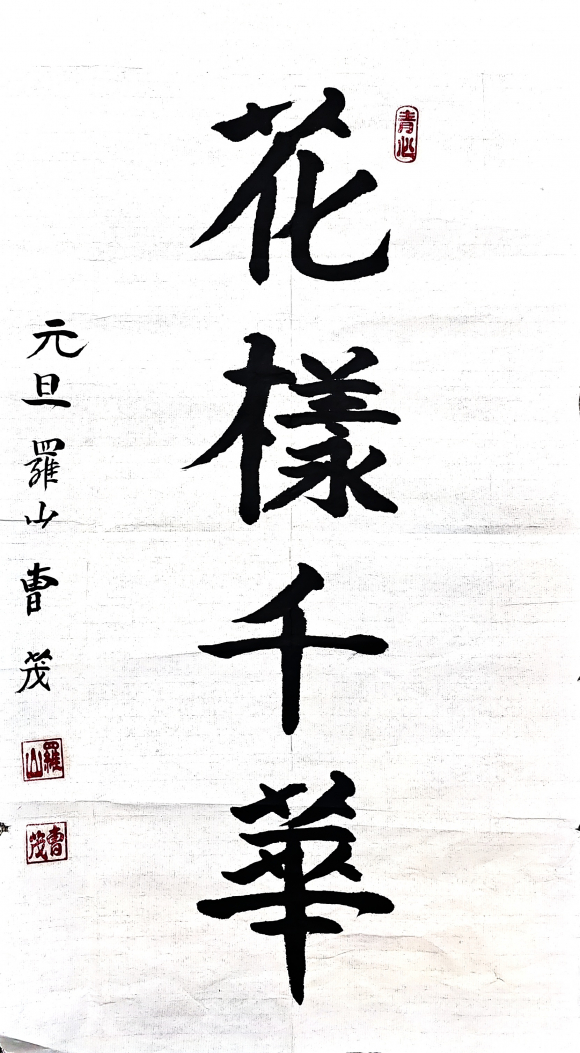 青心
花樣千華
元旦 羅山 曹茂
羅山
曹茂